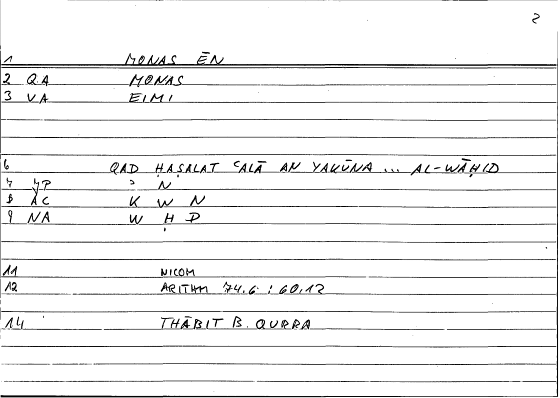 2
1 MONAS ĒN
2 QA MONAS
3 VA EIMI
6 QAD ḤAṢALAT ʿALĀ AN YAKŪNA ... AL-WĀḤID
7 YP ʾ N
8 AC K W N
9 NA W Ḥ D
11 NICOM
12 ARITHM 74.6 : 60.12
14 THĀBIT B. QURRA